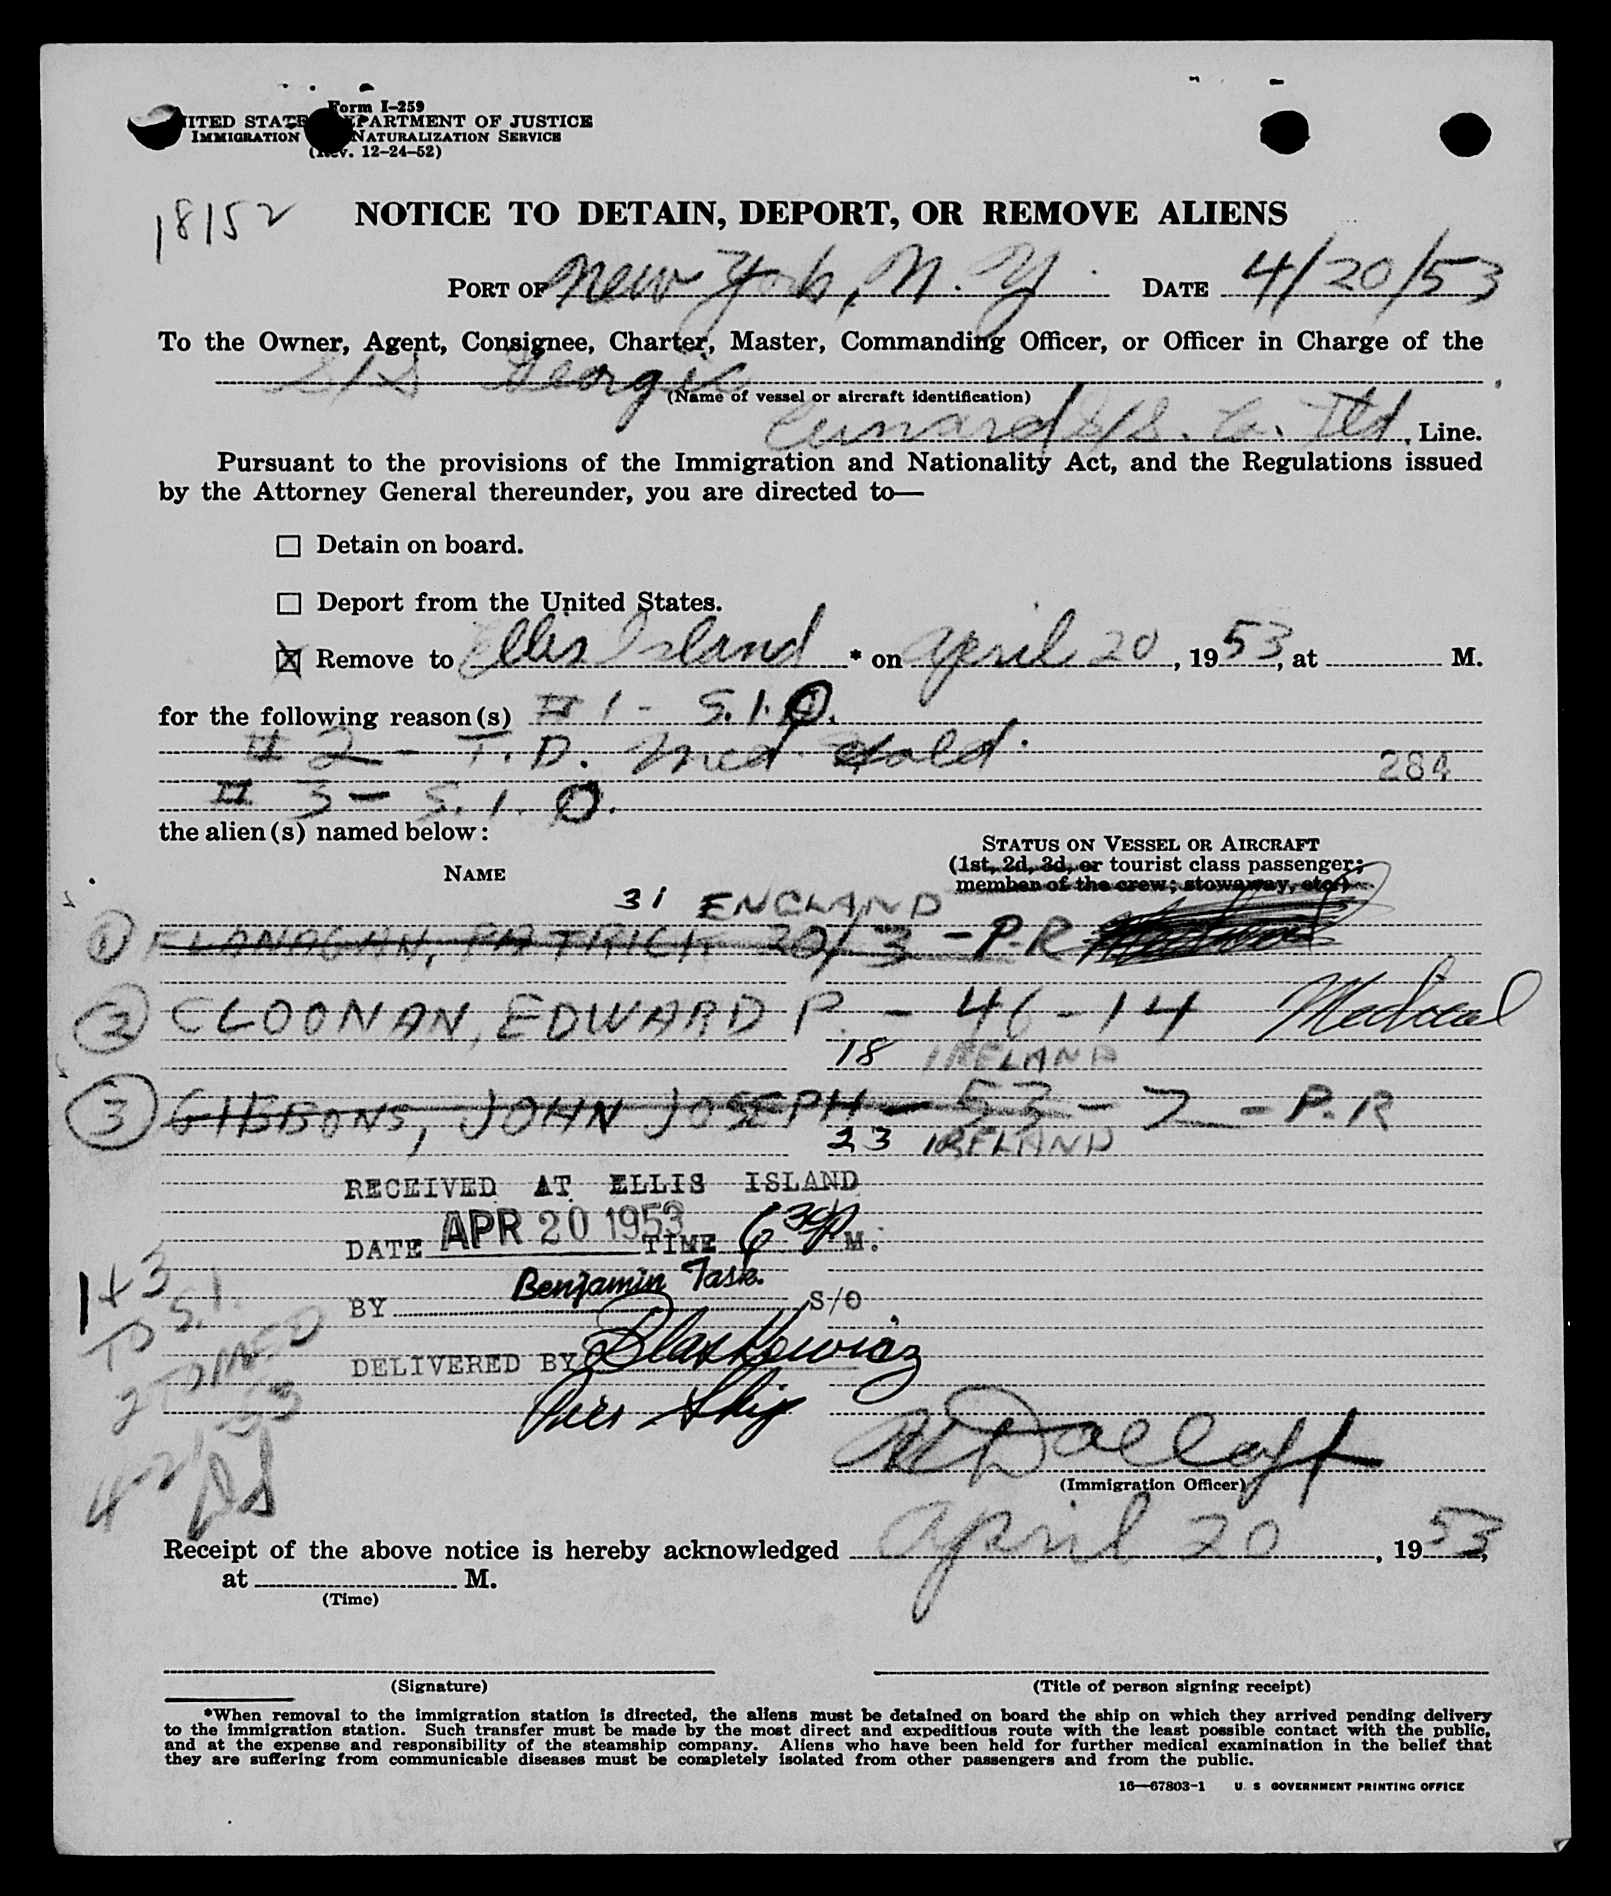 Form I-259
UNITED STATES DEPARTMENT OF JUSTICE
IMMIGRATION NATURALIZATION SERVICE
(Rev. 12-24-52)
18152
NOTICE TO DETAIN, DEPORT, OR REMOVE ALIENS
PORT OF New York, N. Y. DATE 4/20/53
To the Owner, Agent, Consignee, Charter, Master, Commanding Officer, or Officer in Charge of the
S/S Georgic
(Name of vessel or aircraft identification)
Cunard S/S. Co. Ltd, Line.
Pursuant to the provisions of the Immigration and Nationality Act, and the Regulations issued
by the Attorney General thereunder, you are directed to—
☐ Detain on board.
☐ Deport from the United States.
☒ Remove to Ellis Island * on April 20, 1953, at M.
for the following reason(s) #1 - S.I.O.
#2 - T.D. Med. Hold.
284
#3 - S.I.O.
the alien(s) named below:
STATUS ON VESSEL OR AIRCRAFT
NAME
(1st, 2d, 3d, or tourist class passenger;
member of the crew; stowaway, etc.)
31 ENGLAND
① FLANAGAN, PATRICK 20/3 - P-R
② CLOONAN, EDWARD P. - 46-14 Medical
18 IRELAND
③ GIBBONS, JOHN JOSEPH - 53-2 - P.R
23 IRELAND
RECEIVED AT ELLIS ISLAND
DATE APR 20 1953 TIME 6 30 P M.
BY Benjamin Task. S/O
DELIVERED BY Blaskewicz
Pier Ship
1+3
S.I.
TD
2 TD MED
4-21-53
(Immigration Officer)
Receipt of the above notice is hereby acknowledged April 20, 1953,
at M.
(Time)
(Signature) (Title of person signing receipt)
*When removal to the immigration station is directed, the aliens must be detained on board the ship on which they arrived pending delivery
to the immigration station. Such transfer must be made by the most direct and expeditious route with the least possible contact with the public,
and at the expense and responsibility of the steamship company. Aliens who have been held for further medical examination in the belief that
they are suffering from communicable diseases must be completely isolated from other passengers and from the public.
16—67803-1 U. S. GOVERNMENT PRINTING OFFICE